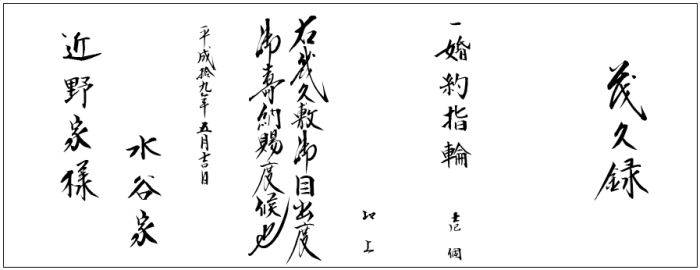 茂久録
一 婚約指輪 壱個
以上
右幾久敷御目出度
御寿納賜度候也
平成拾九年五月吉日
水谷家
近野家様